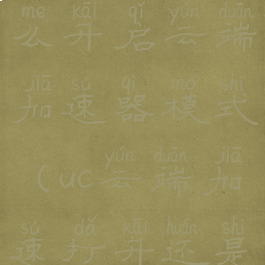 me kāi qǐ yún duān
么开启云端
jiā sù qì mó shì
加速器模式
yún duān jiā
（uc云端加
sù dǎ kāi huán shì
速打开还是